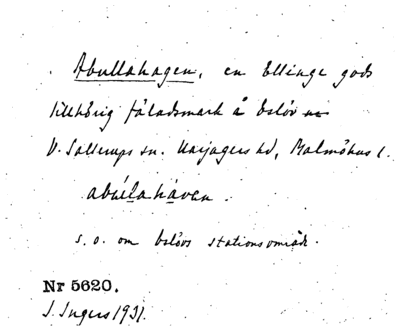 Abullahagen, en Ellinge gods
tillhörig fäladsmark å Eslöv
V. Sallerups sn. Harjagers hd, Malmöhus l.
abúllahàven.
s. o. om Eslövs stationsområde.
Nr 5620.
I. Ingers 1931.